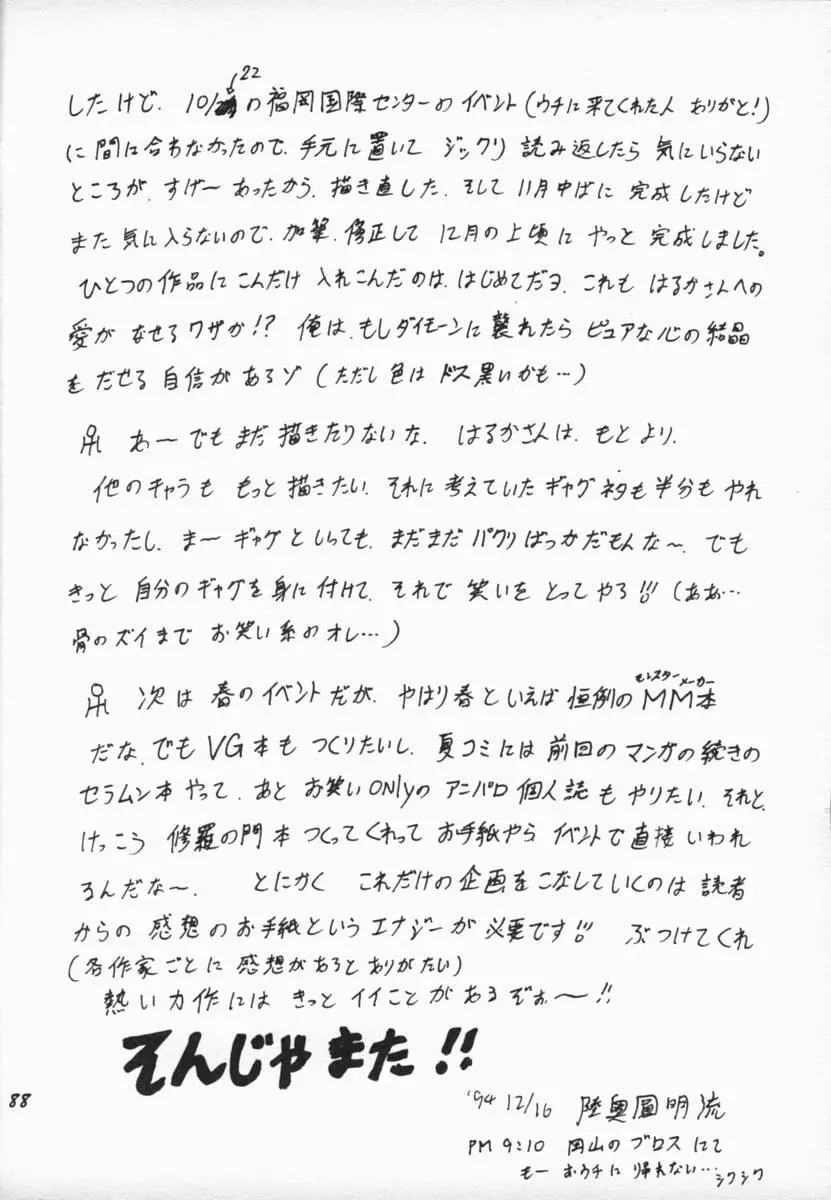 22
したけど、10/の福岡国際センターのイベント(ウチに来てくれた人 ありがと!)
に間に合わなかったので、手元に置いて ジックリ 読み返したら 気にいらない
ところが、すげー あったから、描き直した。そして 11月中ばに 完成したけど
また 気に入らないので、加筆、修正して 12月の上頃に やっと 完成しました。
ひとつの作品に こんだけ 入れこんだのは、はじめてだヨ、これも はるかさんへの
愛が なせるワザか!? 俺は、もしダイモーンに 襲れたら ピュアな心の結晶
を だせる 自信が あるゾ (ただし色は ドス黒いかも…)
あーでも まだ 描きたりないな、はるかさんは、もとより、
他のキャラも もっと描きたい、それに考えていた ギャグネタも 半分も やれ
なかったし、まーギャグと いっても、まだまだ パクリばっかだもんな〜、でも
きっと 自分のギャグを 身に付けて、それで 笑いを とってやる!! (ああ…
骨のズイまで お笑い系の オレ…)
次は 春のイベントだが、やはり春といえば 恒例の MM本
モンスターメーカー
だな、でも VG本も つくりたいし、夏コミには 前回の マンガの続きの
セラムン本 やって、あと お笑い onlyの アニパロ 個人誌も やりたい、それと、
けっこう 修羅の門本 つくってくれって お手紙やら イベントで 直接 いわれ
るんだな〜、 とにかく これだけの企画を こなしていくのは 読者
からの 感想の お手紙という エナジーが 必要です!! ぶつけてくれ
(各作家ごとに 感想があると ありがたい)
熱い力作には きっと イイことが あるぞぉ〜!!
そんじゃ また!!
88
'94 12/16 陸奥圓明流
PM 9:10 岡山の ブロス にて
もー おウチに 帰れない… シクシク